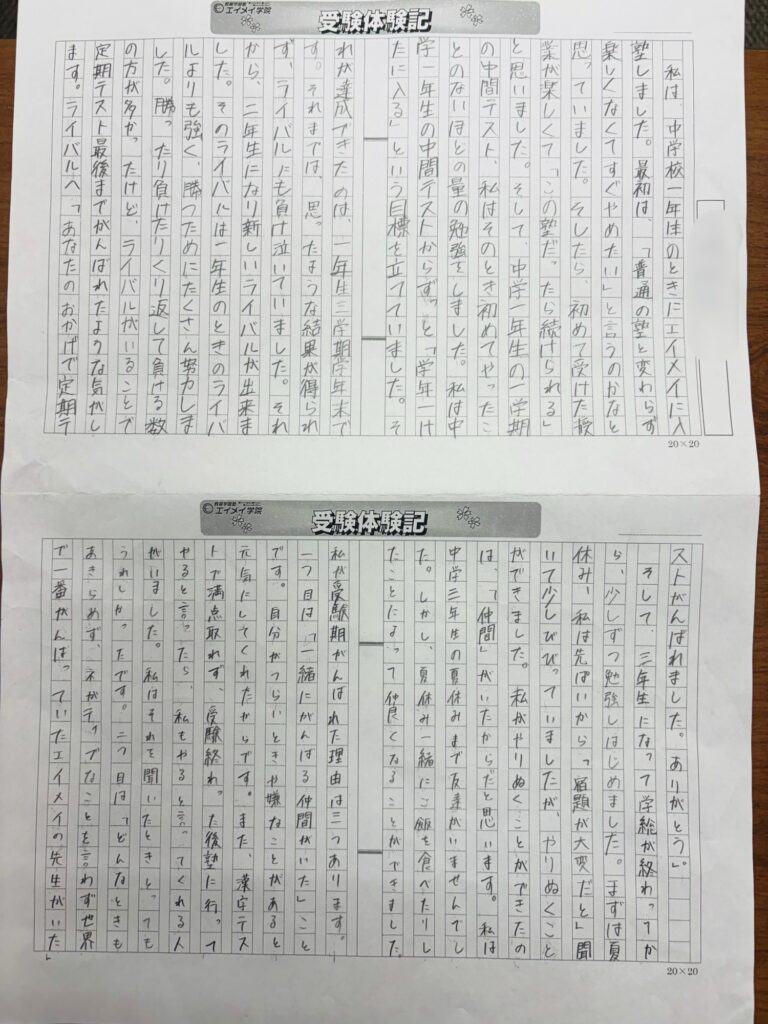 エイメイ学院
受験体験記
私は、中学校一年生のときにエイメイに入
塾しました。最初は、「普通の塾と変わらず
楽しくなくてすぐやめたい」と言うのかなと
思っていました。そしたら、初めて受けた授
業が楽しくて「この塾だったら続けられる」
と思いました。そして、中学一年生の一学期
の中間テスト、私はそのとき初めてやったこ
とのないほどの量の勉強をしました。私は中
学一年生の中間テストからずっと「学年一け
たに入る」という目標を立てていました。そ
れが達成できたのは、一年生三学期学年末で
す。それまでは、思ったような結果が得られ
ず、ライバルにも負け泣いていました。それ
から、二年生になり新しいライバルが出来ま
した。そのライバルは一年生のときのライバ
ルよりも強く、勝つためにたくさん努力しま
した。勝ったり負けたりくり返して負ける数
の方が多かったけど、ライバルがいることで
定期テスト最後までがんばれたような気がし
ます。ライバルへ「あなたのおかげで定期テ
20×20
エイメイ学院
受験体験記
ストがんばれました。ありがとう」。
そして、三年生になって学総が終わってか
ら、少しずつ勉強しはじめました。まずは夏
休み、私は先ぱいから「宿題が大変だと」聞
いて少しびびっていましたが、やりぬくこと
ができました。私がやりぬくことができたの
は、「仲間」がいたからだと思います。私は
中学三年生の夏休みまで友達がいませんでし
た。しかし、夏休み一緒にご飯を食べたりし
たことによって仲良くなることができました。
私が受験期がんばれた理由は三つあります。
一つ目は「一緒にがんばる仲間がいた」こと
です。自分がつらいときや嫌なことがあると
元気にしてくれたからです。また、漢字テス
トで満点取れず、受験終わった後塾に行って
やると言ったら、私もやると言ってくれる人
がいました。私はそれを聞いたときとっても
うれしかったです。二つ目は「どんなときも
あきらめず、ネガティブなことを言わず世界
で一番がんばっていたエイメイの先生がいた」
20×20